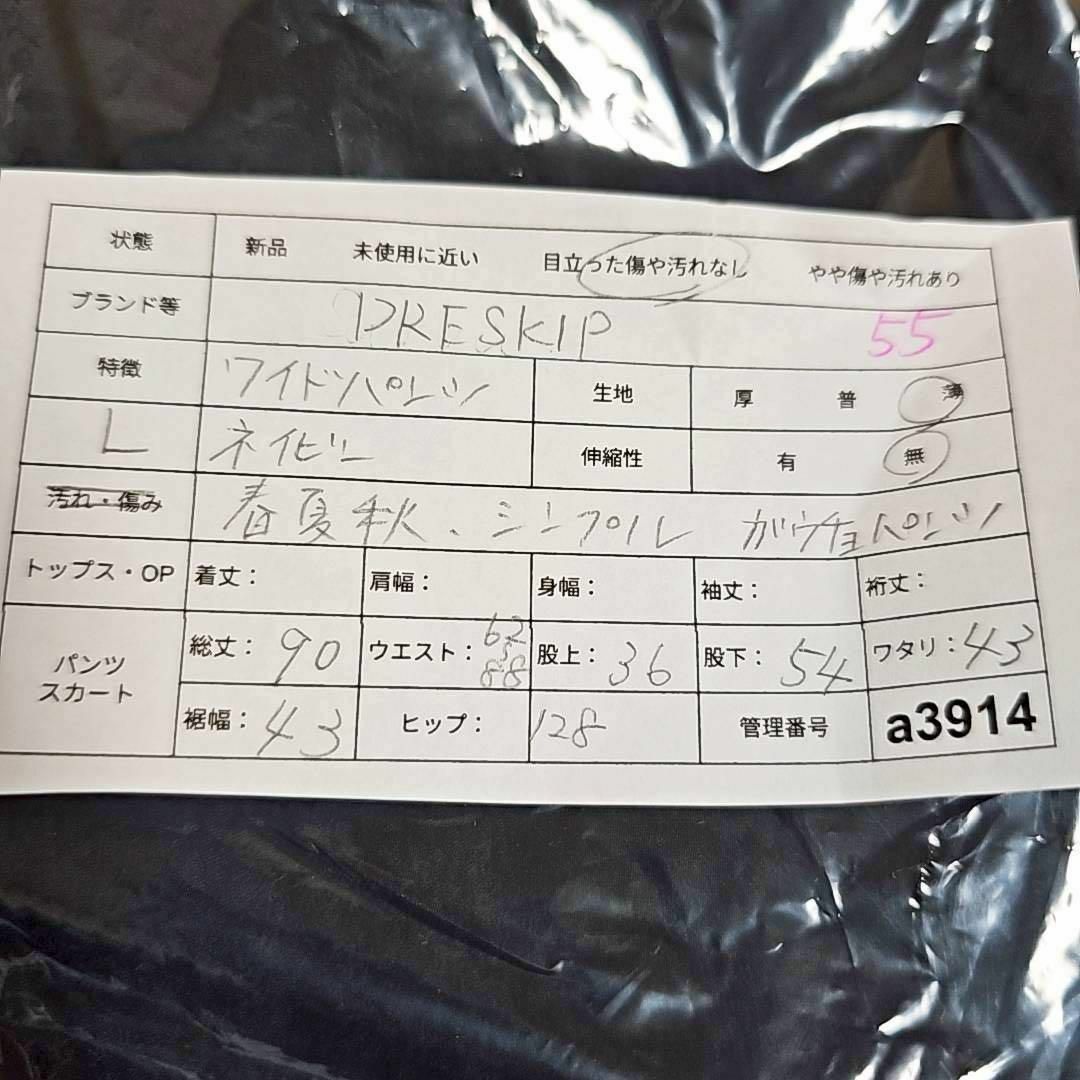 状態 新品 未使用に近い 目立った傷や汚れなし やや傷や汚れあり
ブランド等 PRESKIP 55
特徴 ワイドパンツ 生地 厚 普 薄
L ネイビー 伸縮性 有 無
汚れ・傷み 春夏秋、シンプル ガウチョパンツ
トップス・OP 着丈: 肩幅: 身幅: 袖丈: 裄丈:
パンツ スカート 総丈: 90 ウエスト: 62 〜 88 股上: 36 股下: 54 ワタリ: 43
裾幅: 43 ヒップ: 128 管理番号 a3914